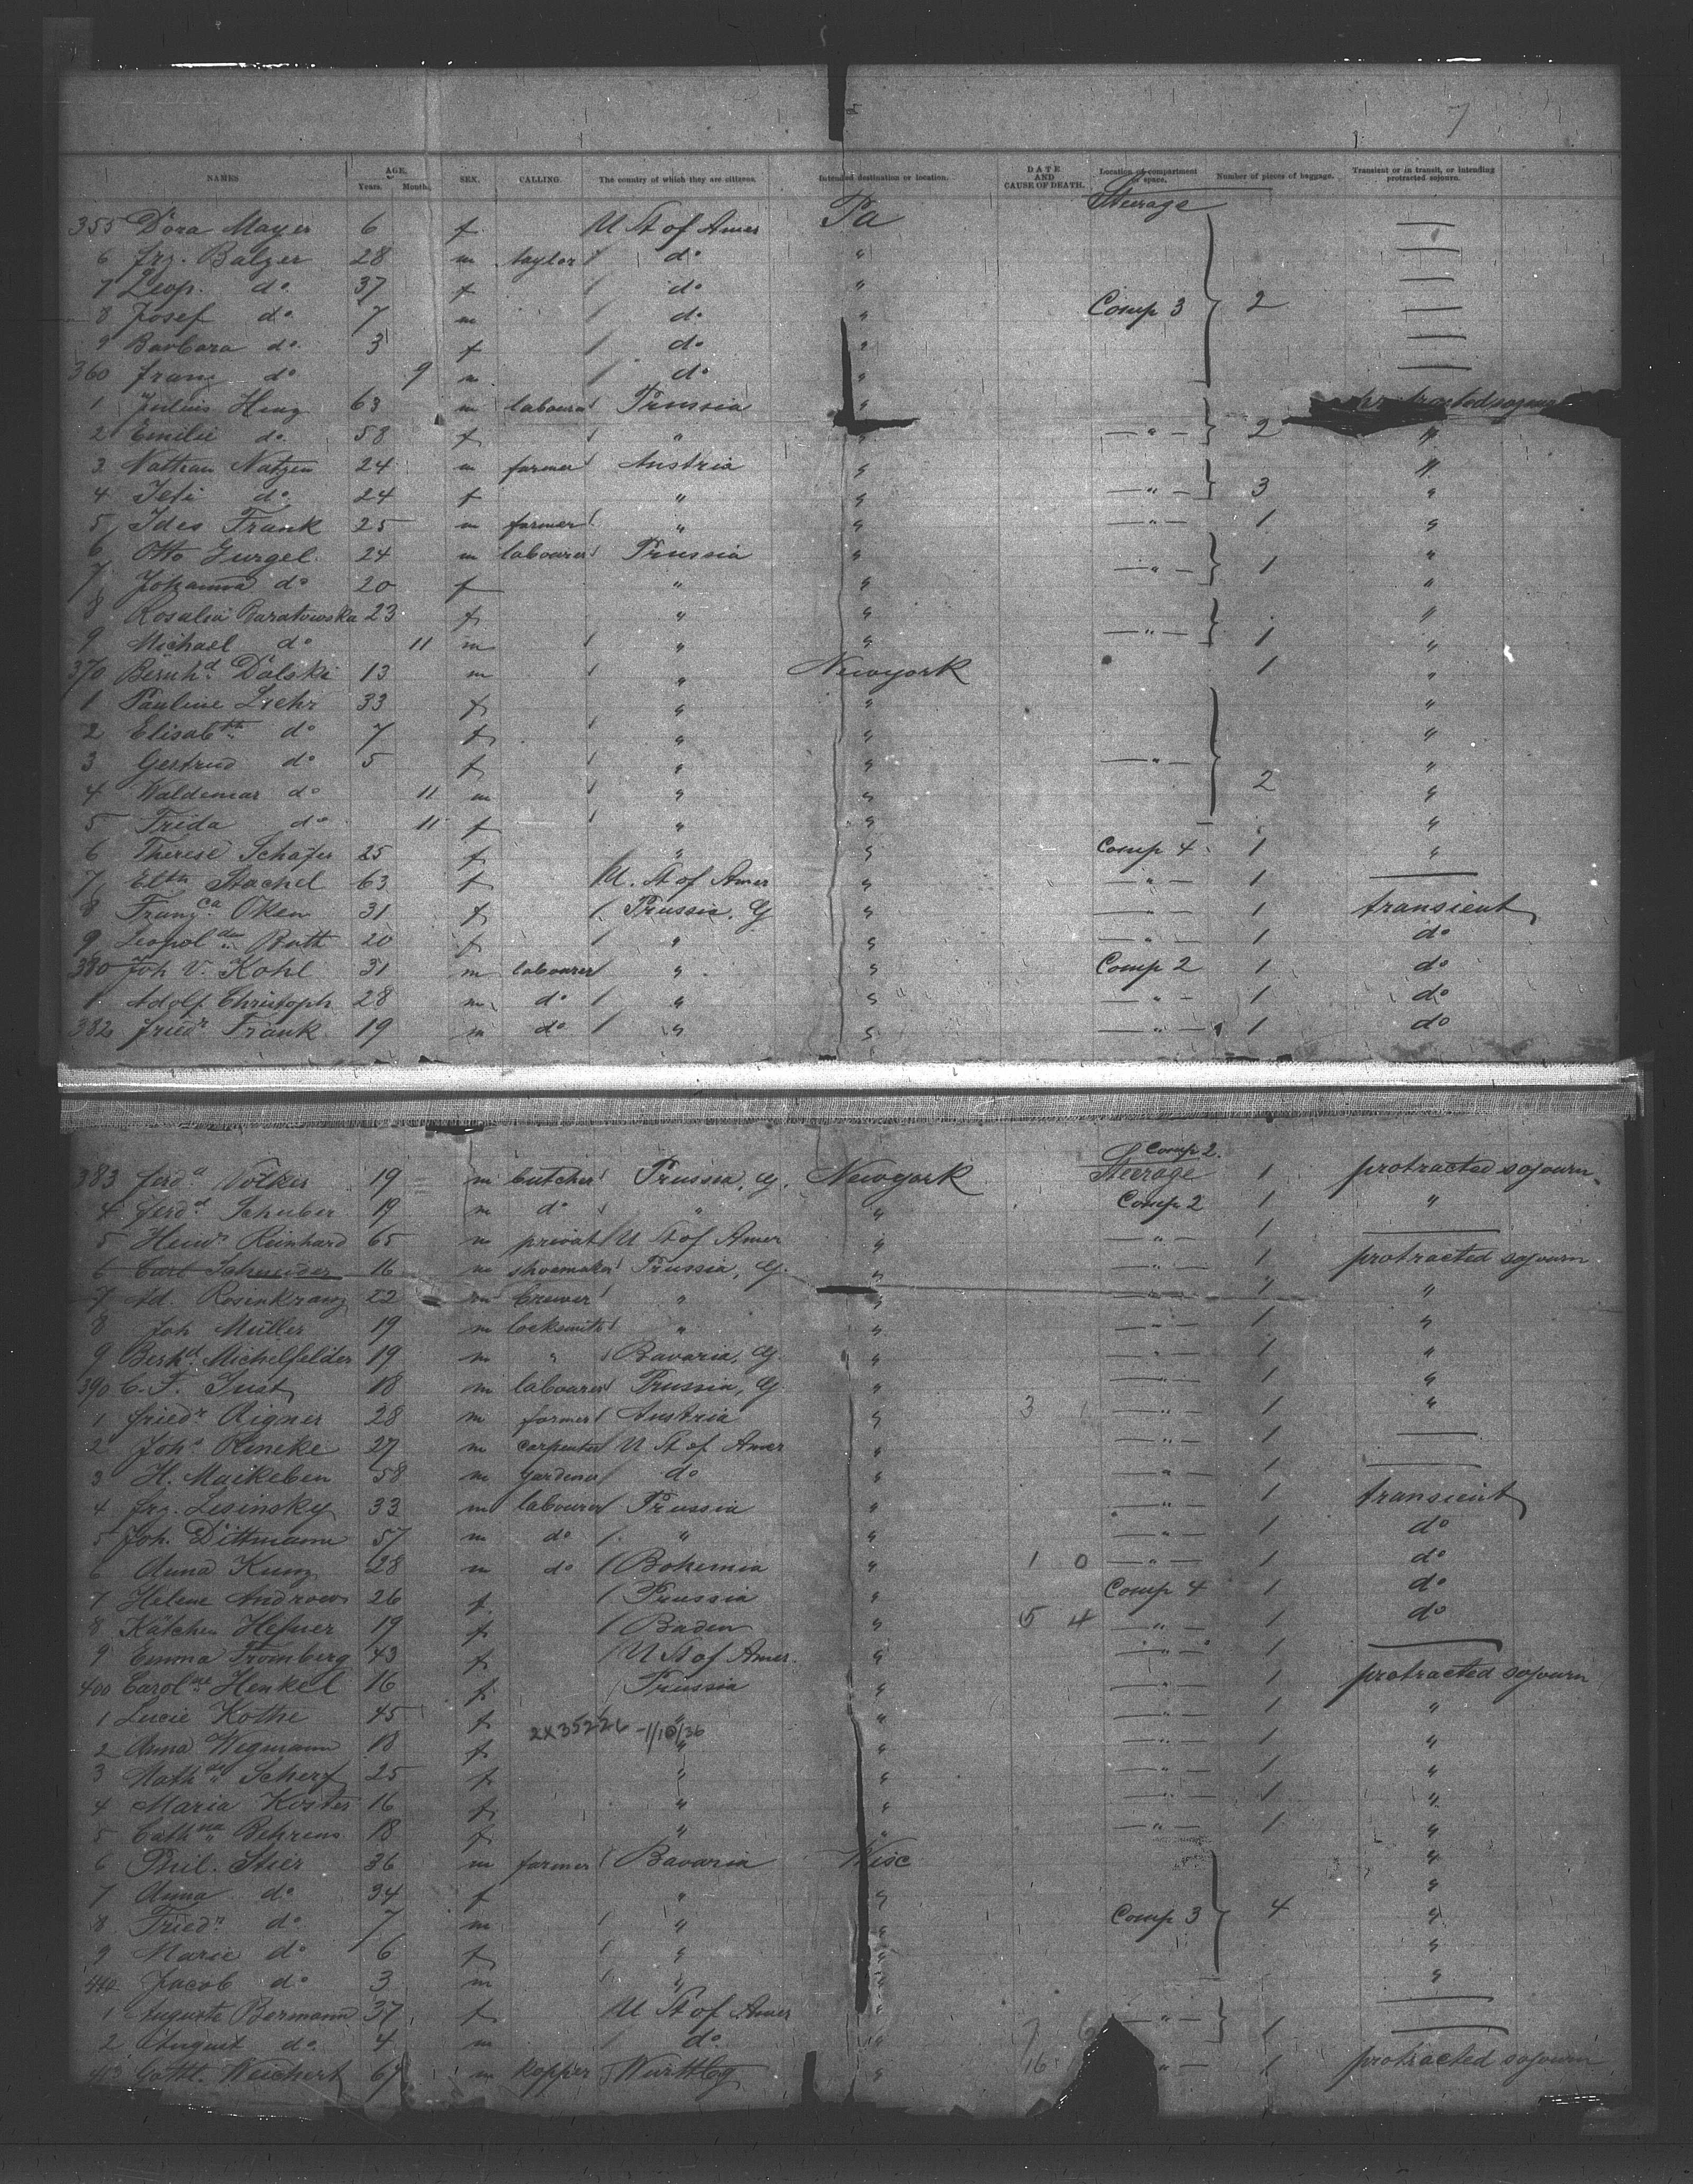 7
NAMES AGE, Years. Months. SEX. CALLING. The country of which they are citizens. Intended destination or location. DATE AND CAUSE OF DEATH. Location of compartment or space. Number of pieces of baggage. Transient or in transit, or intending protracted sojourn.
Steerage
355 Dora Mayer 6 f U St of Amer Pa —
6 Frz. Balzer 28 m taylor do " —
7 Leop. do 37 f do " —
8 Josef do 7 m do " Comp 3 2 —
9 Barbara do 3 f do " —
360 Franz do 9 m do " —
1 Julius Heng 63 m labourer Prussia " protracted sojourn
2 Emilie do 58 f " " — " — 2 "
3 Nathan Natzen 24 m farmer Austria " "
4 Jeti do 24 f " " — " — 3 "
5 Ides Frank 25 m farmer " " — " — 1 "
6 Otto Gurgel 24 m labourer Prussia " "
7 Johanna do 20 f " " — " — 1 "
8 Rosalia Baratowska 23 f " " "
9 Michael do 11 m " " — " — 1 "
370 Bernhd. Dolski 13 m " Newyork 1 "
1 Pauline Liehr 33 f " " "
2 Elisabth do 7 f " " "
3 Gertrud do 5 f " " — " — "
4 Waldemar do 11 m " " 2 "
5 Frida do 11 f " " "
6 Therese Schäfer 25 f " " Comp 4 1 "
7 Elth Stachel 63 f U. St of Amer " — " — 1 —
8 Franzca Oken 31 f Prussia. G " — " — 1 transient
9 Leopolda Bott 20 f " " — " — 1 do
380 Joh V. Kohl 31 m labourer " " Comp 2 1 do
1 Adolf Christoph 28 m do " " — " — 1 do
382 Friedr Frank 19 m do " " — " — 1 do
Comp 2.
383 Ferdd Volker 19 m butcher Prussia, G. Newyork Steerage 1 protracted sojourn
4 Ferdd Schuber 19 m do " " Comp 2 1 "
5 Heinr Reinhard 65 m privat U St of Amer " — " — 1 —
6 Carl Schneider 16 m shoemaker Prussia, G. " — " — 1 protracted sojourn
7 Ad. Rosenkranz 22 m brewer " " — " — 1 "
8 Joh Müller 19 m locksmith " " — " — 1 "
9 Berhd. Michelfelder 19 m " Bavaria, G. " — " — 1 "
390 C. F. Just 18 m labourer Prussia, G " — " — 1 "
1 Friedr Rigner 28 m farmer Austria " 3 1 — " — 1 "
2 Johs Reneke 27 m carpenter U St of Amer " — " — 1 —
3 H. Maikeben 58 m gardener do " — " — 1 —
4 Frz. Lesinsky 33 m labourer Prussia " — " — 1 transient
5 Joh. Dittmann 57 m do " " — " — 1 do
6 Anna Kunz 28 m do Bohemia " 1 0 — " — 1 do
7 Helene Androws 26 f Prussia " Comp 4 1 do
8 Kätchen Hefner 19 f Baden " 5 4 — " — 1 do
9 Emma Fromberg 43 f U St of Amer. " — " — 1 —
400 Carolne Henkel 16 f Prussia " — " — 1 protracted sojourn
1 Lucie Kothe 45 f " " — " — 1 "
2X35226 - 1/10/36
2 Anna Wegmann 18 f " " — " — 1 "
3 Mathde Scherf 25 f " " — " — 1 "
4 Maria Koster 16 f " " — " — 1 "
5 Cathna Behrens 18 f " " — " — 1 "
6 Phil. Stier 36 m farmer Bavaria Wisc "
7 Anna do 34 f " " "
8 Friedr do 7 m " " Comp 3 4 "
9 Marie do 6 f " " "
410 Jacob do 3 m " " "
1 Auguste Bormann 37 f U St of Amer " — " — —
2 August do 4 m do " 7 6 1 —
413 Gottl. Weichert 64 m kopper Württbg " 16 " — 1 protracted sojourn